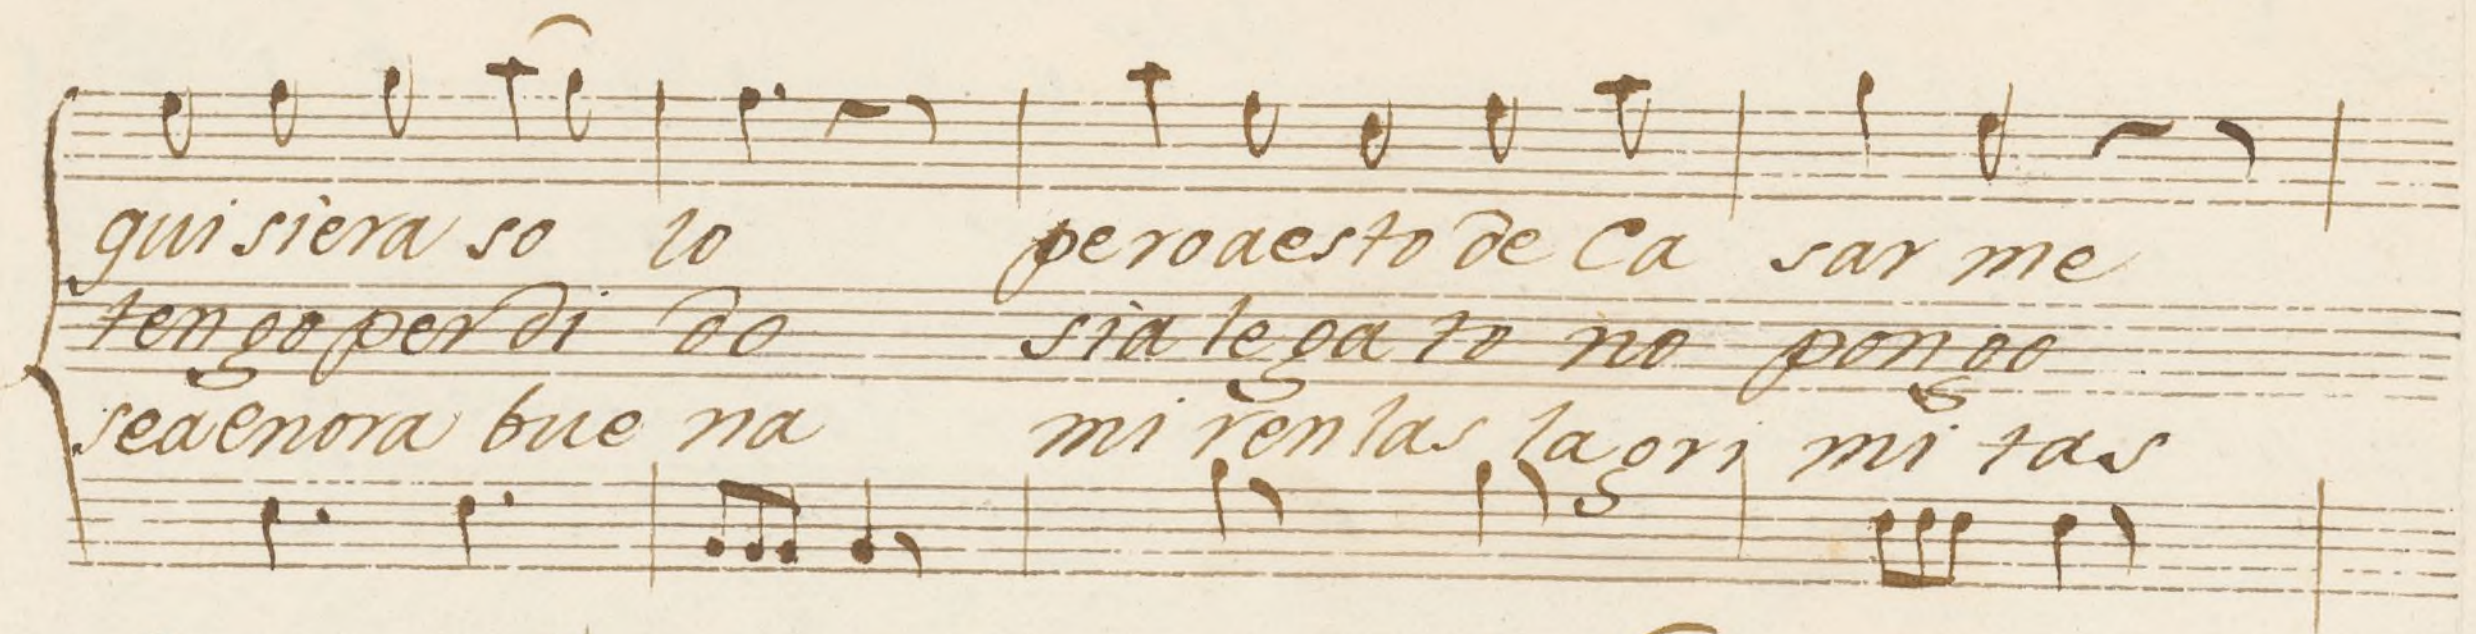 quisiera so lo peroaesto de Ca sar me
tengo perdi do sia le ga to no pongo
seaenora bue na mi ren las lagri mi tas